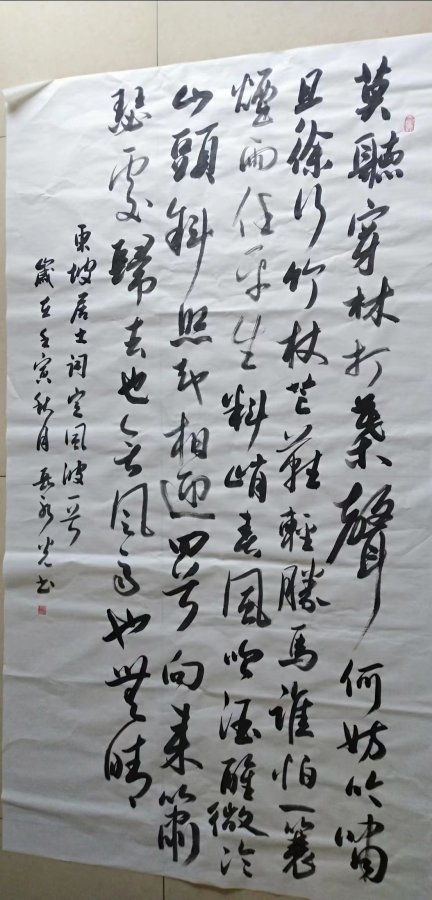 莫聽穿林打葉聲何妨吟嘯
且徐行竹杖芒鞋輕勝馬誰怕一蓑
煙雨任平生料峭春風吹酒醒微冷
山頭斜照却相迎回首向來蕭
瑟處歸去也無風雨也無晴
東坡居士詞定風波一首
歲在壬寅秋月永光书